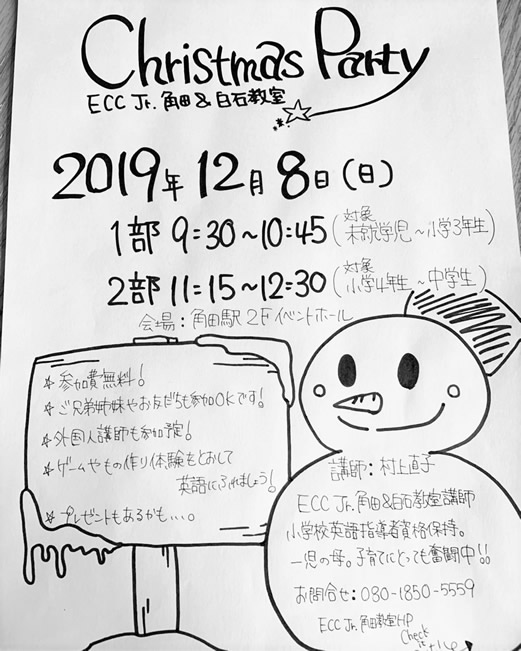 Christmas Party
ECC Jr. 角田&白石教室
2019年12月8日(日)
1部 9:30~10:45(対象 未就学児~小学3年生)
2部 11:15~12:30(対象 小学4年生~中学生)
会場:角田駅2Fイベントホール
☆参加費無料!
☆ご兄弟姉妹やお友だちも参加OKです!
☆外国人講師も参加予定!
☆ゲームやもの作り体験をとおして
英語にふれましょう!
☆プレゼントもあるかも...。
講師:村上直子
ECC Jr.角田&白石教室講師
小学校英語指導者資格保持。
一児の母。子育てにとっても奮闘中!!
お問合せ:080-1850-5559
ECC Jr.角田教室HP
Check
it